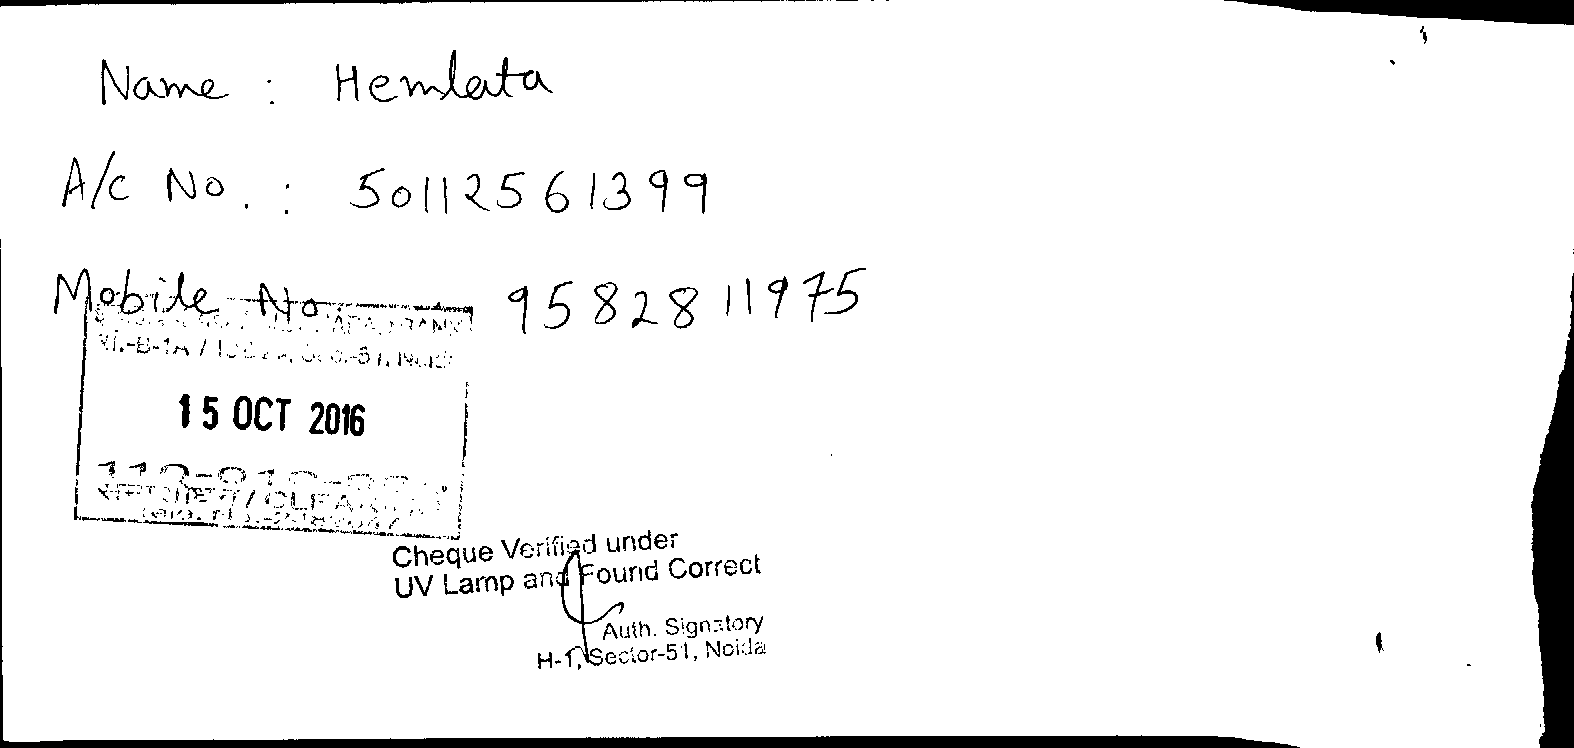 Name : Hemlata
A/c No. : 50112561399
Mobile No 9582811975
15 OCT 2016
Cheque Verified under
UV Lamp and Found Correct
Auth. Signatory
H-1, Sector-51, Noida